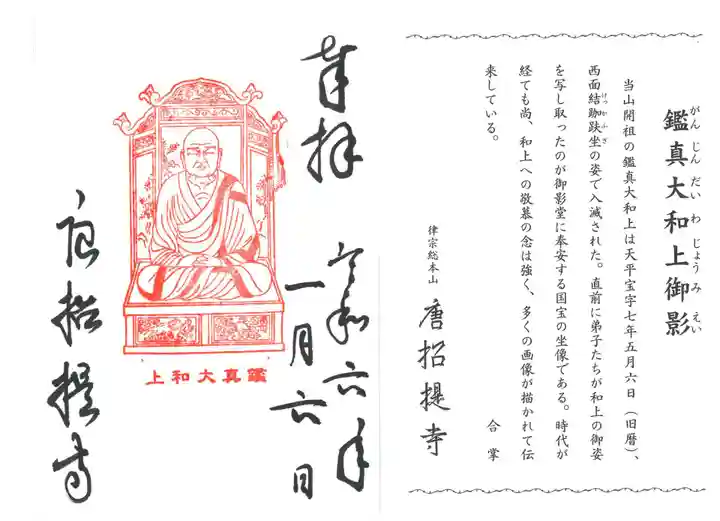 鑑真大和上御影
がんじんだいわじょうみえい
当山開祖の鑑真大和上は天平宝字七年五月六日（旧暦）、
西面結跏趺坐の姿で入滅された。直前に弟子たちが和上の御姿
けっかふざ
を写し取ったのが御影堂に奉安する国宝の坐像である。時代が
経ても尚、和上への敬慕の念は強く、多くの画像が描かれて伝
来している。
合掌
律宗総本山 唐招提寺
奉拝
令和六年
一月六日
上和大真鑑
唐招提寺